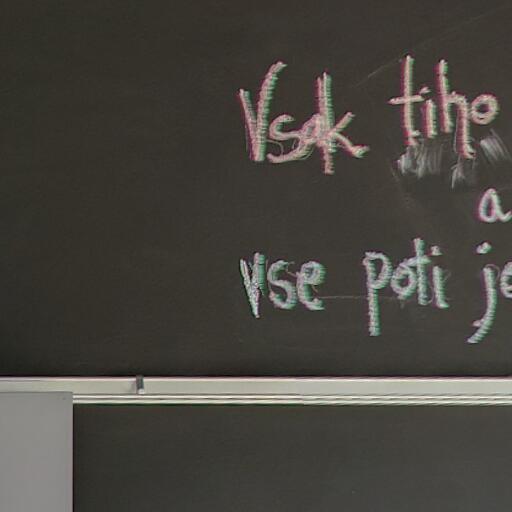 Vsak tiho
a
vse poti je